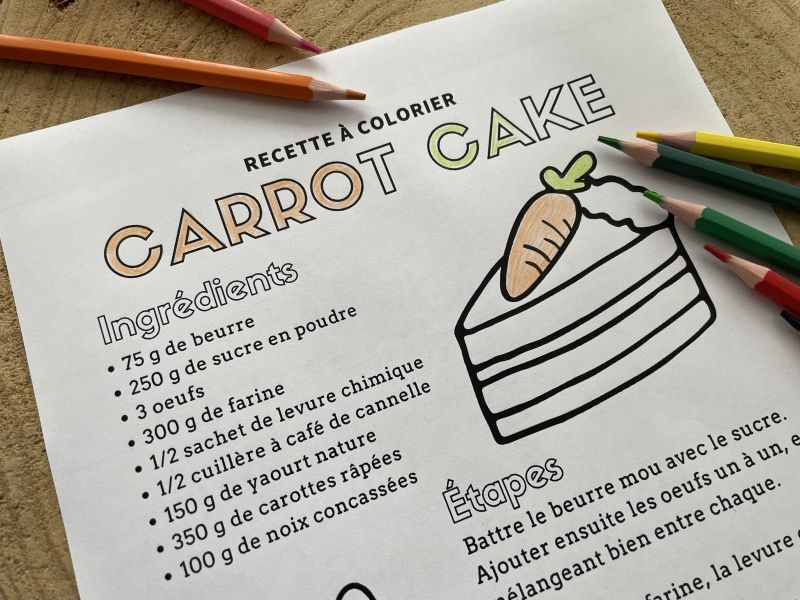 RECETTE À COLORIER
CARROT CAKE
Ingrédients
• 75 g de beurre
• 250 g de sucre en poudre
• 3 oeufs
• 300 g de farine
• 1/2 sachet de levure chimique
• 1/2 cuillère à café de cannelle
• 150 g de yaourt nature
• 350 g de carottes râpées
• 100 g de noix concassées
Étapes
Battre le beurre mou avec le sucre.
Ajouter ensuite les oeufs un à un, e
mélangeant bien entre chaque.
farine, la levure